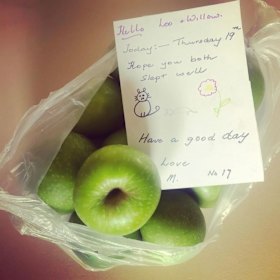 Hello Loo + Willow.
Today:- Thursday 19th
Hope you both
slept well
Have a good day
Love
M. No 17